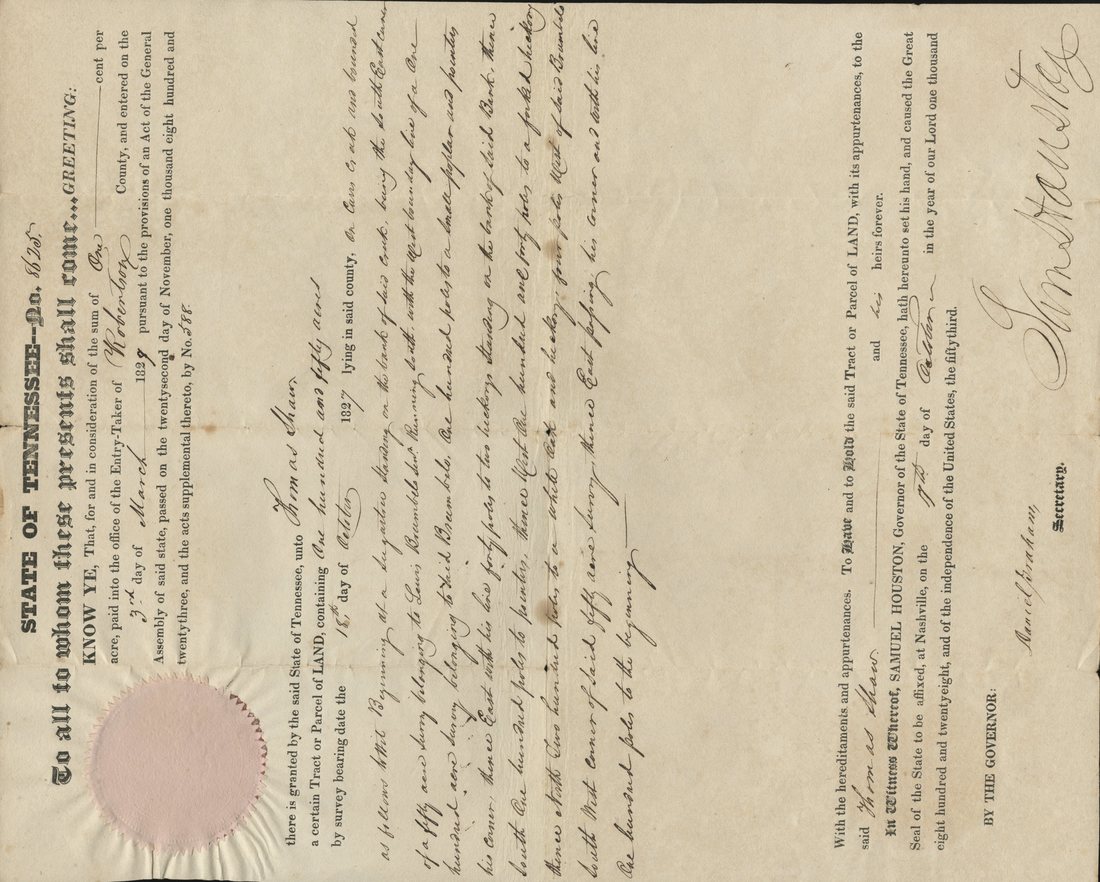 STATE OF TENNESSEE--No. 8625.
To all to whom these presents shall come...GREETING:
KNOW YE, That, for and in consideration of the sum of One cent per
acre, paid into the office of the Entry-Taker of Robertson County, and entered on the
3rd day of March 1827 pursuant to the provisions of an Act of the General
Assembly of said state, passed on the twentysecond day of November, one thousand eight hundred and
twentythree, and the acts supplemental thereto, by No. 588
there is granted by the said State of Tennessee, unto Thomas Shaw,
a certain Tract or Parcel of LAND, containing One hundred and fifty acres
by survey bearing date the 18th day of October 1827 lying in said county, on
as follows to wit Beginning at a sugartree standing on the bank of said creek being the south East corner
of a fifty acre survey belonging to Lewis Brumbelo Running South with the West boundary line of a One
hundred acre survey belonging to said Brumbelo, One hundred poles to a small poplar and pointers
his corner thence East with his line forty poles to two hickorys standing on the bank of said Bank, thence
South One hundred poles to pointers, thence West One hundred and forty poles to a forked hickory
thence North Two hundred poles to a white Oak and hickory four poles West of said Brumbelo
South West corner of said fifty acre survey, thence East passing his corner and with his line
One hundred poles to the beginning
With the hereditaments and appurtenances. To Have and to Hold the said Tract or Parcel of LAND, with its appurtenances, to the
said Thomas Shaw and his heirs forever.
In Witness Whereof, SAMUEL HOUSTON, Governor of the State of Tennessee, hath hereunto set his hand, and caused the Great
Seal of the State to be affixed, at Nashville, on the day of October in the year of our Lord one thousand
eight hundred and twentyeight, and of the independence of the United States, the fiftythird.
BY THE GOVERNOR:
Sam Houston
Daniel Graham,
Secretary.